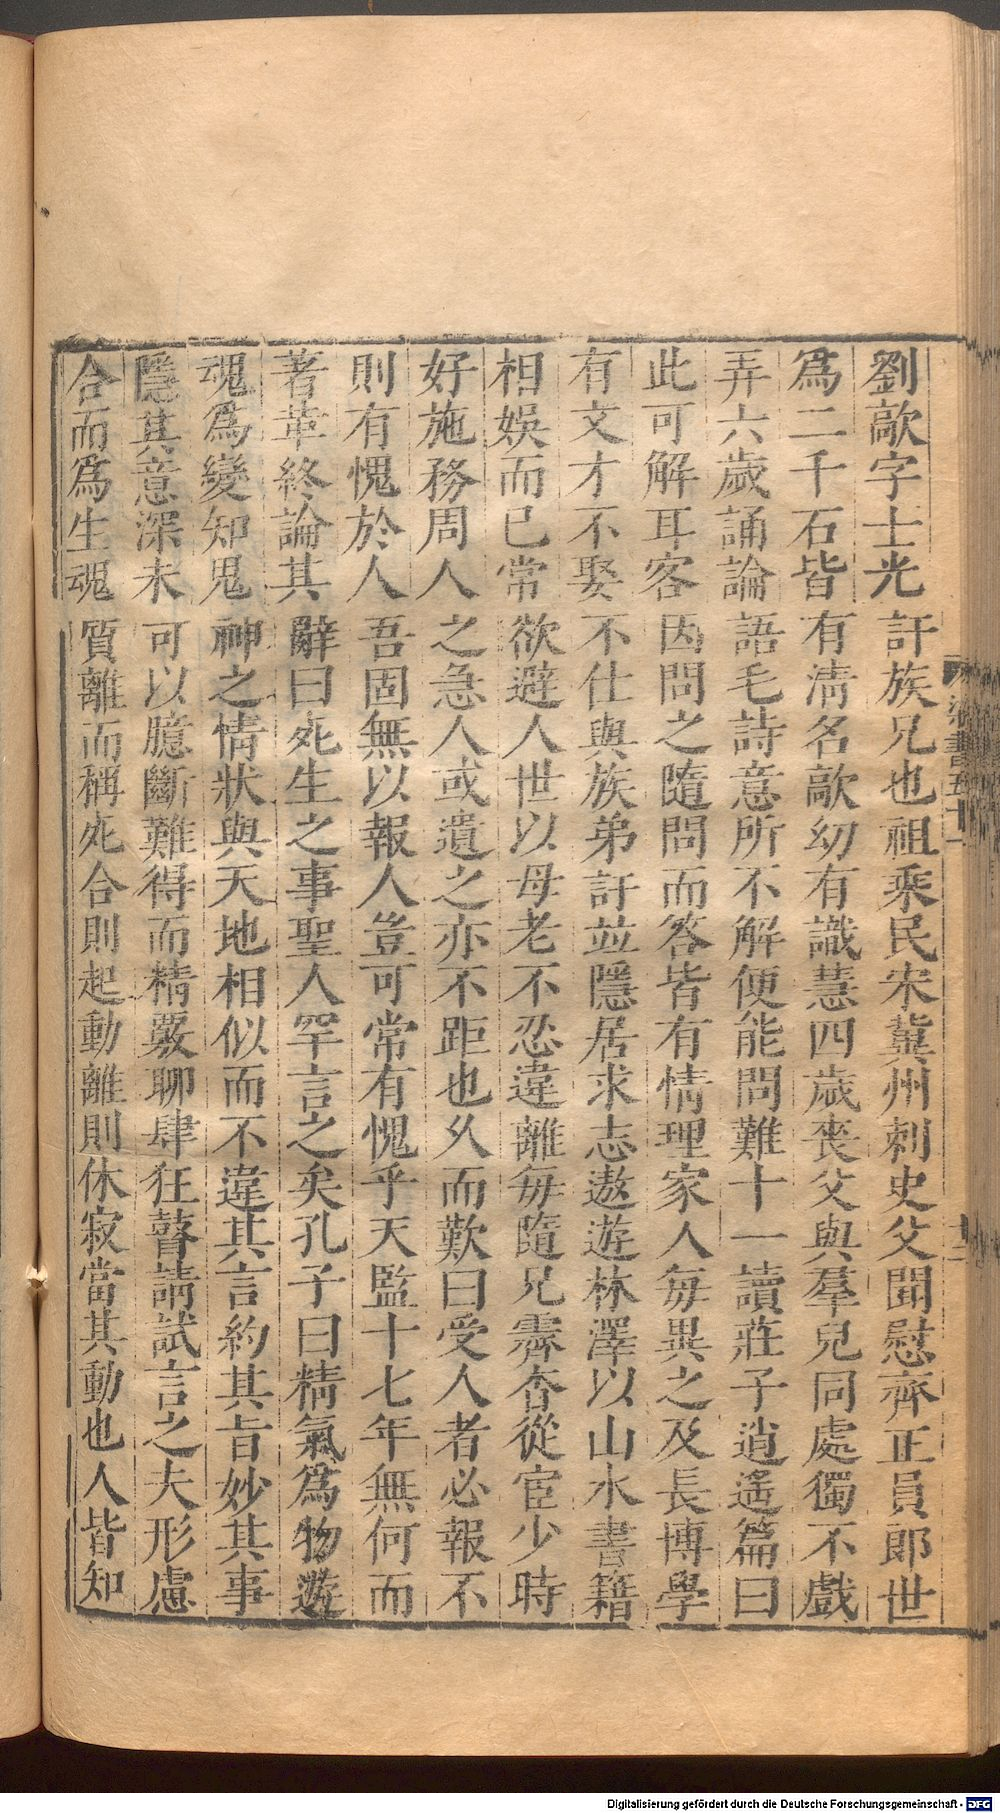 劉歊字士光訏族兄也祖乘民宋冀州刺史父聞慰齊正員郎世
爲二千石皆有淸名歊幼有識慧四歲喪父與羣兒同處獨不戲
弄六歲誦論語毛詩意所不解便能問難十一讀莊子逍遙篇曰
此可解耳客因問之隨問而答皆有情理家人每異之及長博學
有文才不娶不仕與族弟訏並隱居求志遨遊林澤以山水書籍
相娛而已常欲避人世以母老不忍違離每隨兄霽杳從宦少時
好施務周人之急人或遺之亦不距也久而歎曰受人者必報不
則有愧於人吾固無以報人豈可常有愧乎天監十七年無何而
著革終論其辭曰死生之事聖人罕言之矣孔子曰精氣爲物遊
魂爲變知鬼神之情狀與天地相似而不違其言約其旨妙其事
隱其意深未可以臆斷難得而精覈聊肆狂瞽請試言之夫形慮
合而爲生魂質離而稱死合則起動離則休寂當其動也人皆知
梁書五十一
Digitalisierung gefördert durch die Deutsche Forschungsgemeinschaft - DFG